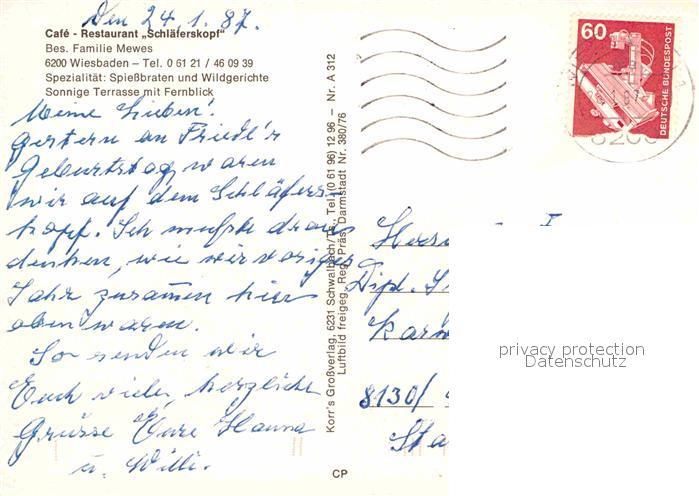 Den 24.1.87.
Café - Restaurant „Schläferskopf"
Bes. Familie Mewes
6200 Wiesbaden – Tel. 0 61 21 / 46 09 39
Spezialität: Spießbraten und Wildgerichte
Sonnige Terrasse mit Fernblick
Meine Lieben!
Gestern an Friedl's
Geburtstag waren
wir auf dem Schläfers-
kopf. Ich mußte dran
denken, wie wir voriges
Jahr zusammen hier
oben waren.
So senden wir
Euch viele, herzliche
Grüsse Eure Hanna
u. Willi.
Korr's Großverlag, 6231 Schwalbach/Ts., Tel. (0 61 96) 12 96 – Nr. A 312
Luftbild freigeg. Reg. Präs. Darmstadt Nr. 380/76
CP
60
DEUTSCHE BUNDESPOST
- I
Dipl.
8130/
Sta
privacy protection
Datenschutz